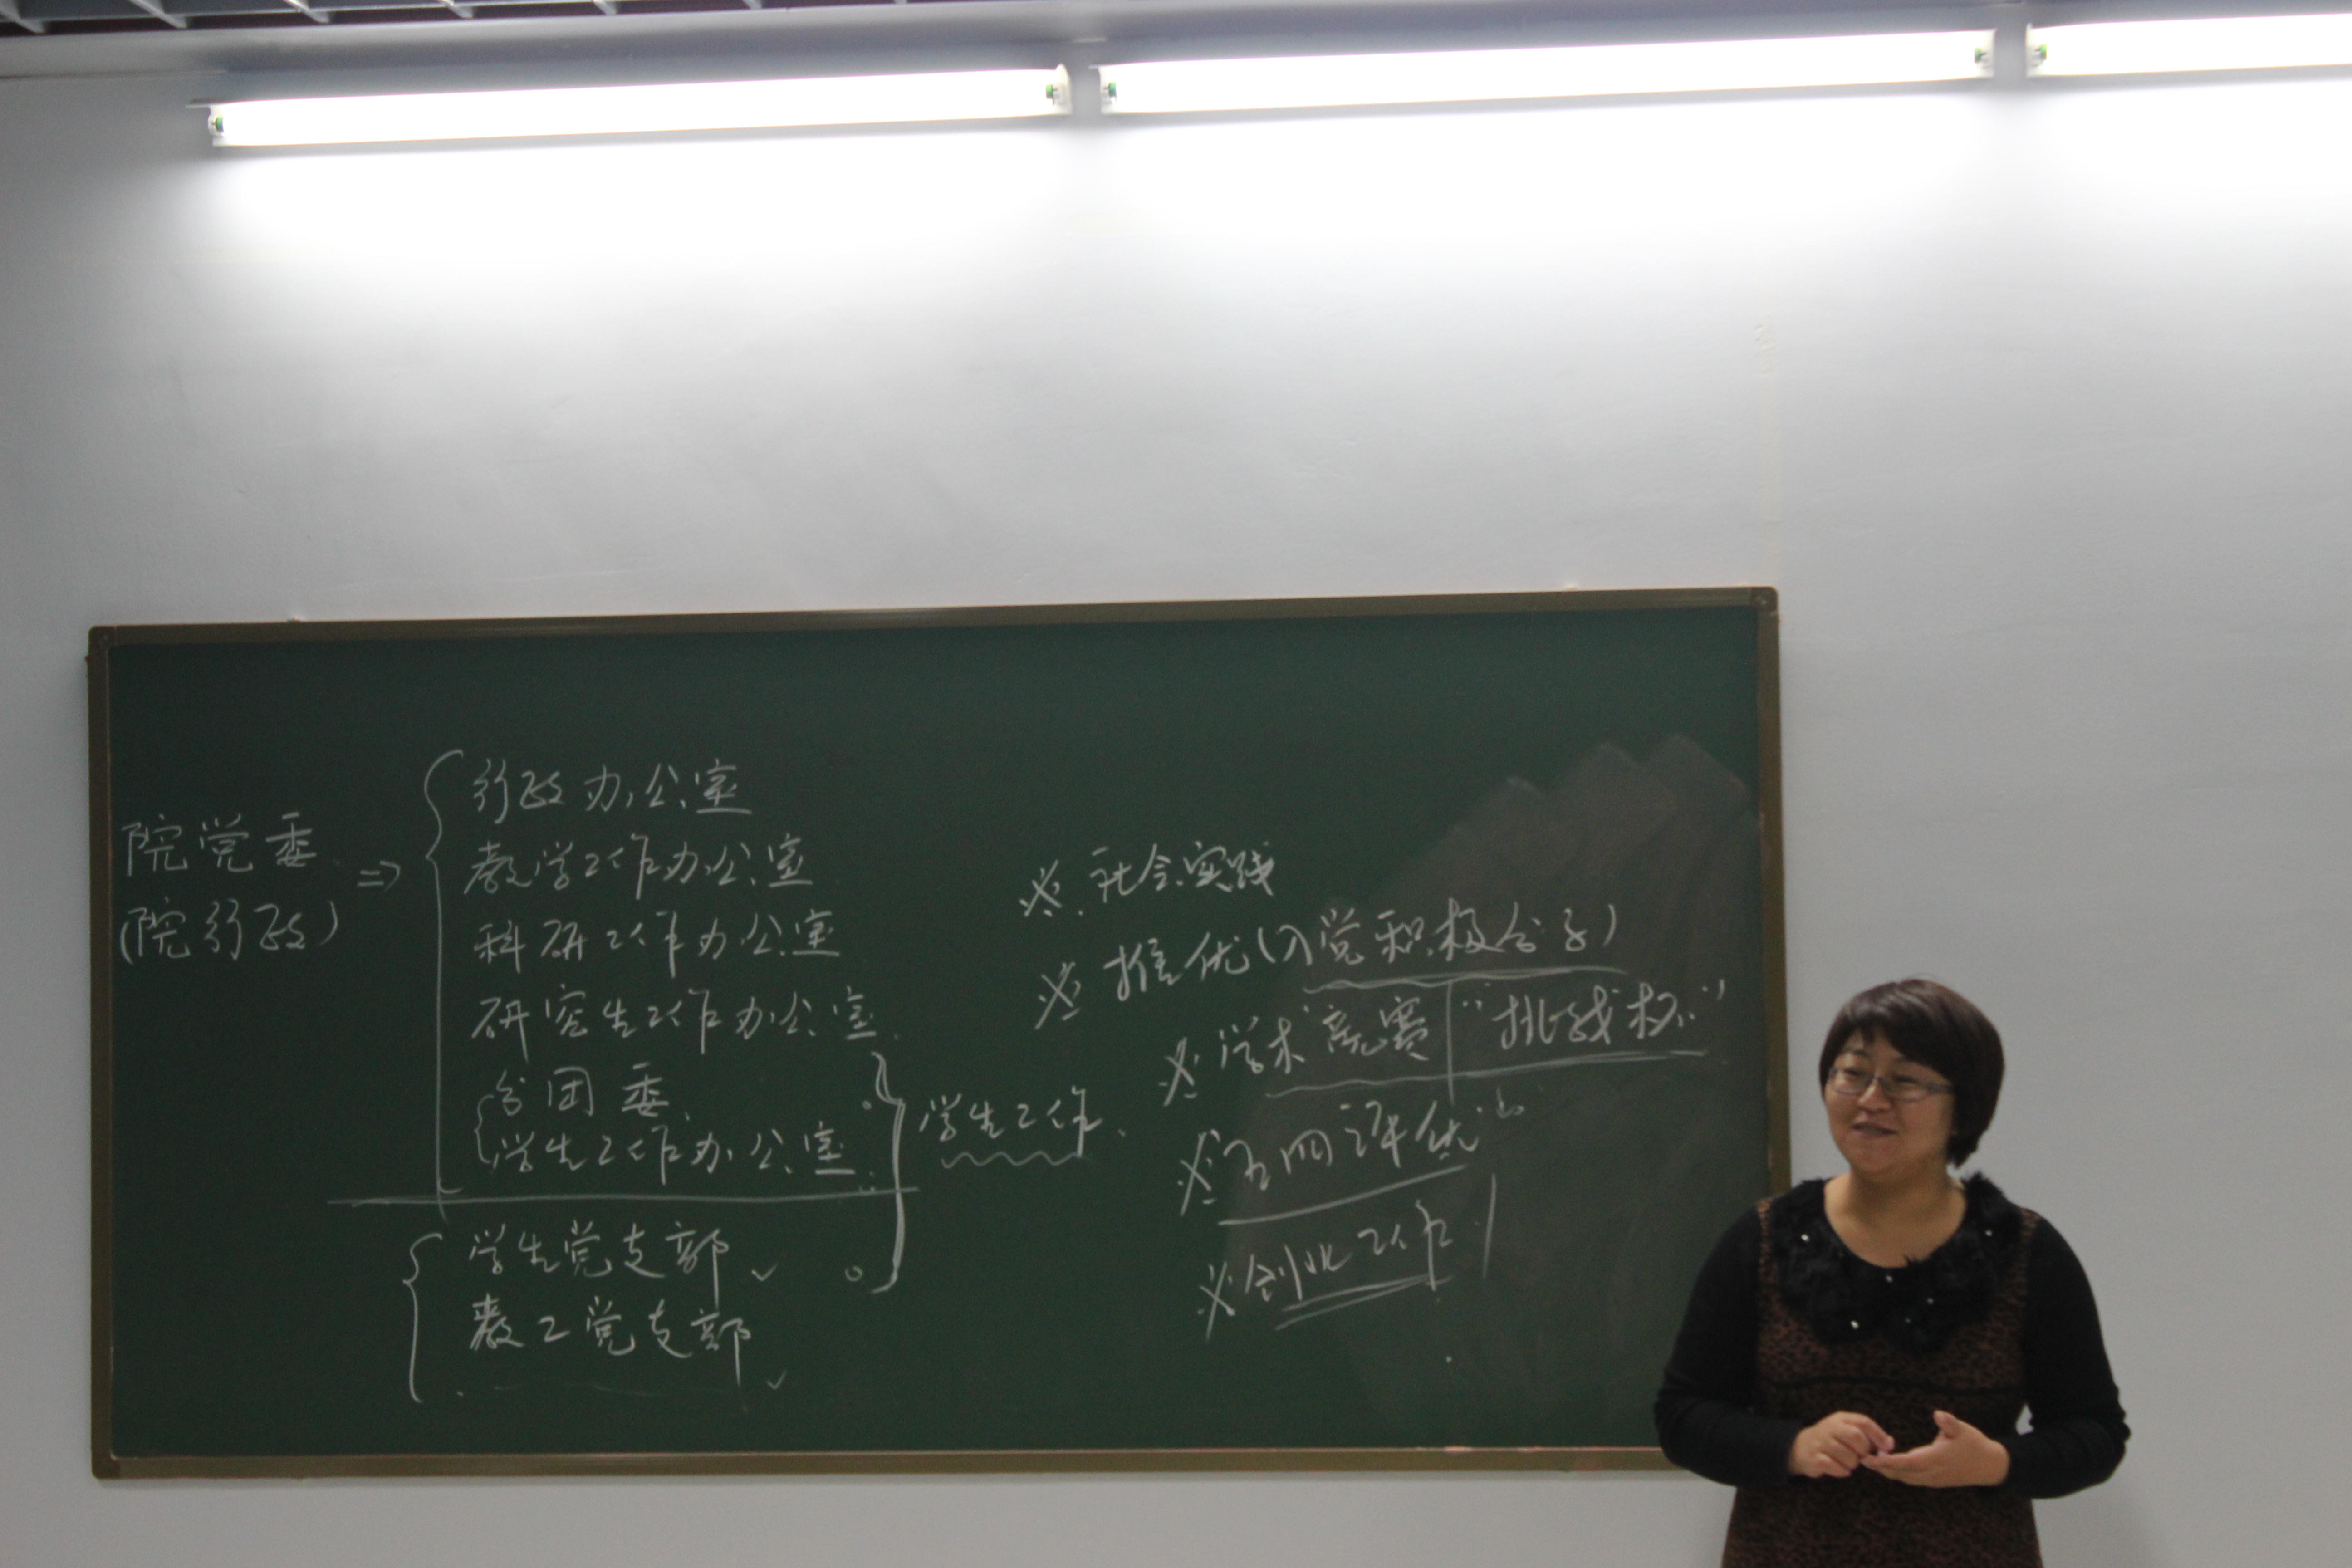 院党委
(院行政)
⇒
行政办公室
教学工作办公室
科研工作办公室
研究生工作办公室
分团委
学生工作办公室
学生党支部 ✓
教工党支部 ✓
学生工作
※ 社会实践
※ 推优(入党积极分子)
※ 学术竞赛 "挑战杯"
※ 五四评优"
※ 创业工作